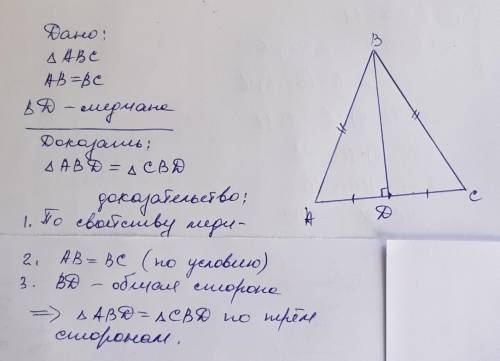 Дано:
△ABC
AB=BC
BD - медиана
Доказать:
△ABD = △CBD
доказательство:
1. По свойству меди-
2. AB = BC (по условию)
3. BD - общая сторона
⟹ △ABD = △CBD по трём
сторонам.
B
A
D
C